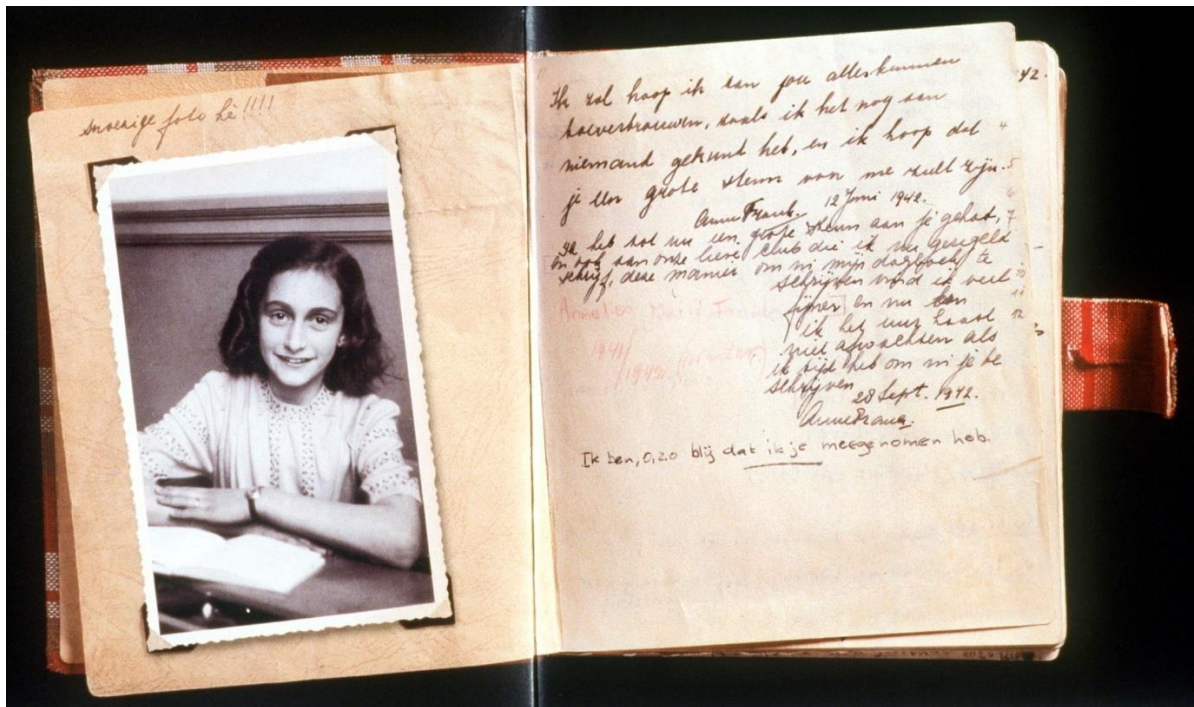 snoezige foto hè!!!!
42.
Ik zal hoop ik aan jou alles kunnen
toevertrouwen, zoals ik het nog aan
niemand gekund heb, en ik hoop dat
je een grote steun voor me zult zijn.
Anne Frank. 12 Juni 1942.
Ik heb tot nu een grote steun aan je gehad,
en ook aan onze lieve club die ik nu geregeld
schrijf, deze manier om in mijn dagboek te
schrijven vind ik veel
fijner en nu kan
ik het uur haast
niet afwachten als
ik tijd heb om in je te
schrijven
28 Sept. 1942.
Anne Frank.
Annelies Marie Frank
1941/
/1942
Ik ben, o, zo blij dat ik je meegenomen heb.